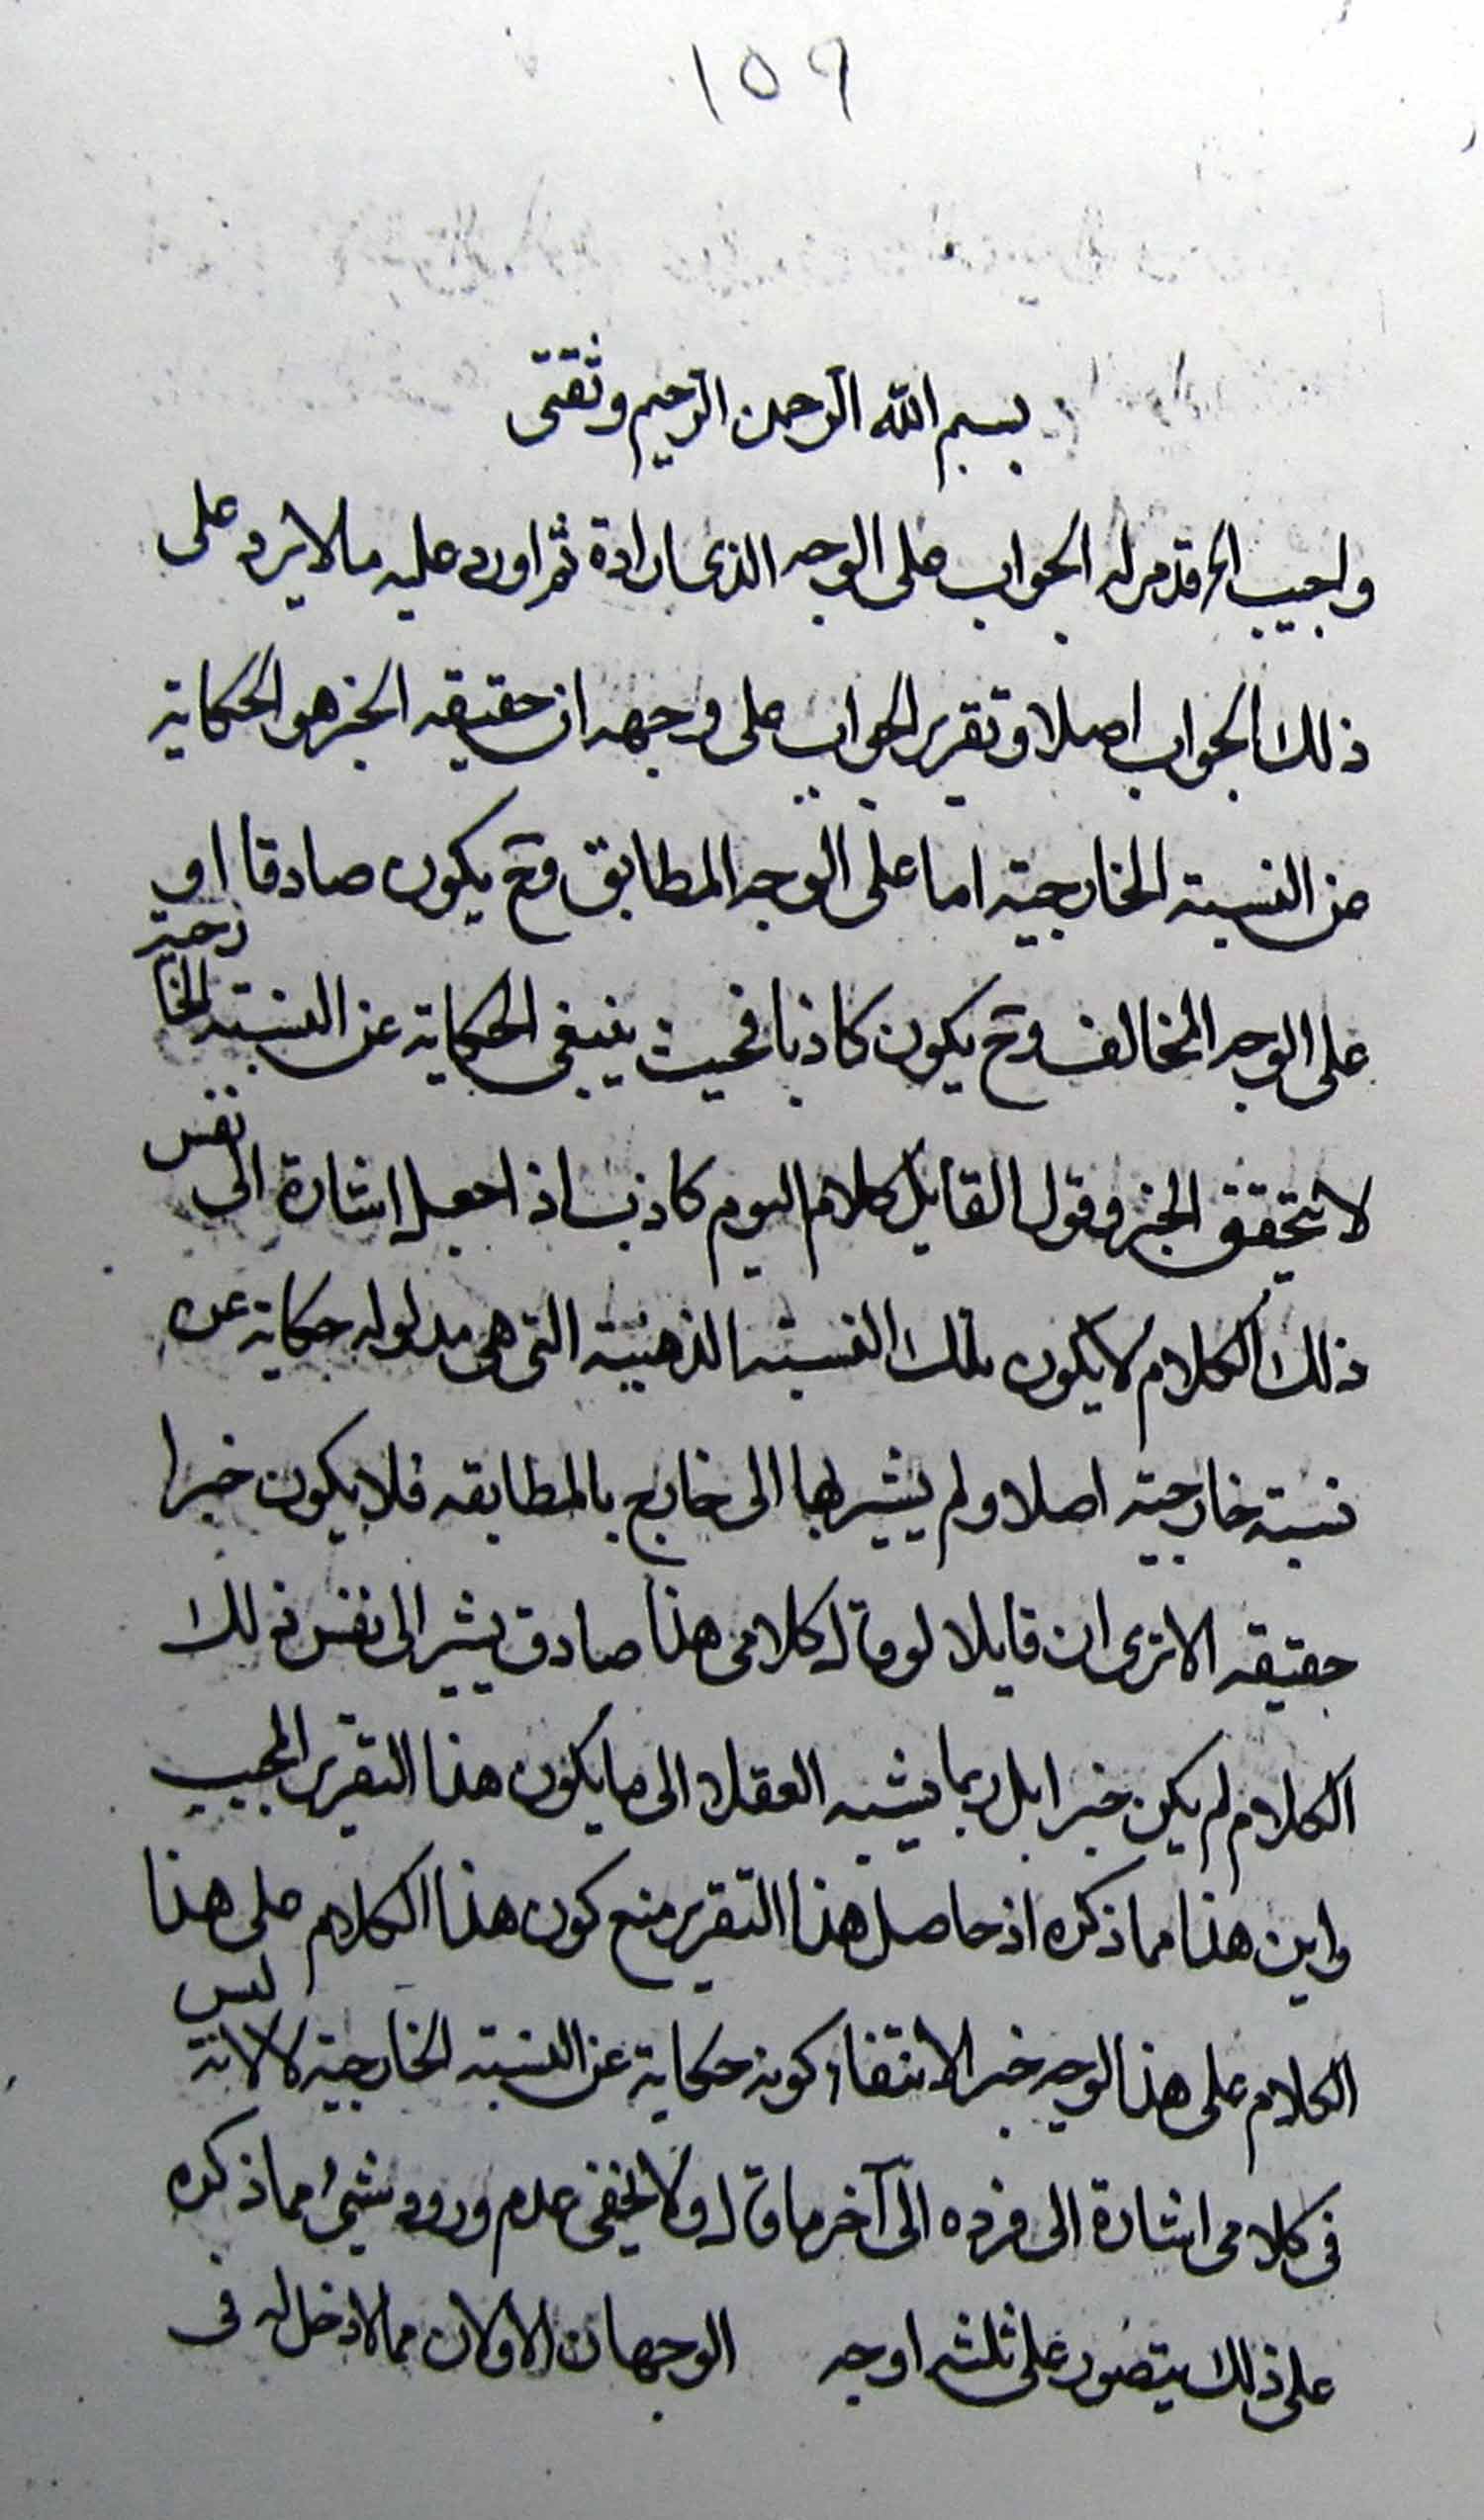 ١٥٩
بسم الله الرحمن الرحيم وثقتى
واجيب الخ قد مر له الجواب على الوجه الذى اراده ثم اورد عليه ما لا يرد على
ذلك الجواب اصلا وتقرير الجواب على وجهه ان حقيقه الخبر هو الحكاية
عن النسبته الخارجية اما على الوجه المطابق وح يكون صادقا او
على الوجه المخالف وح يكون كاذبا فحيث ينبغى الحكاية عن النسبته الخارجية
لا يتحقق الخبر وقول القايل كلام اليوم كاذب اذا جعل اشارة الى نفس
ذلك الكلام لا يكون تلك النسبته الذهنية التى هى مدلوله حكاية عن
نسبته خارجية اصلا ولم يشير بها الى خارج بالمطابقه فلا يكون خبرا
حقيقه الا ترى ان قايلا لو قال كلامى هذا صادق يشير الى نفس ذلك
الكلام لم يكن خبرا بل ربما يشبه العقلا الى ما يكون هذا التقرير المجيب
واين هذا مما ذكره اذ حاصل هذا التقرير منع كون هذا الكلام على هذا
الكلام على هذا الوجه خبر الانتفاء كونه حكاية عن النسبته الخارجية لا لانه ليس
فى كلامى اشارة الى فرده الى آخر ما قال ولا يخفى عدم ورود شئ مما ذكره
على ذلك يتصور على ثلثه اوجه الوجهان الاولان مما لا دخل له فى